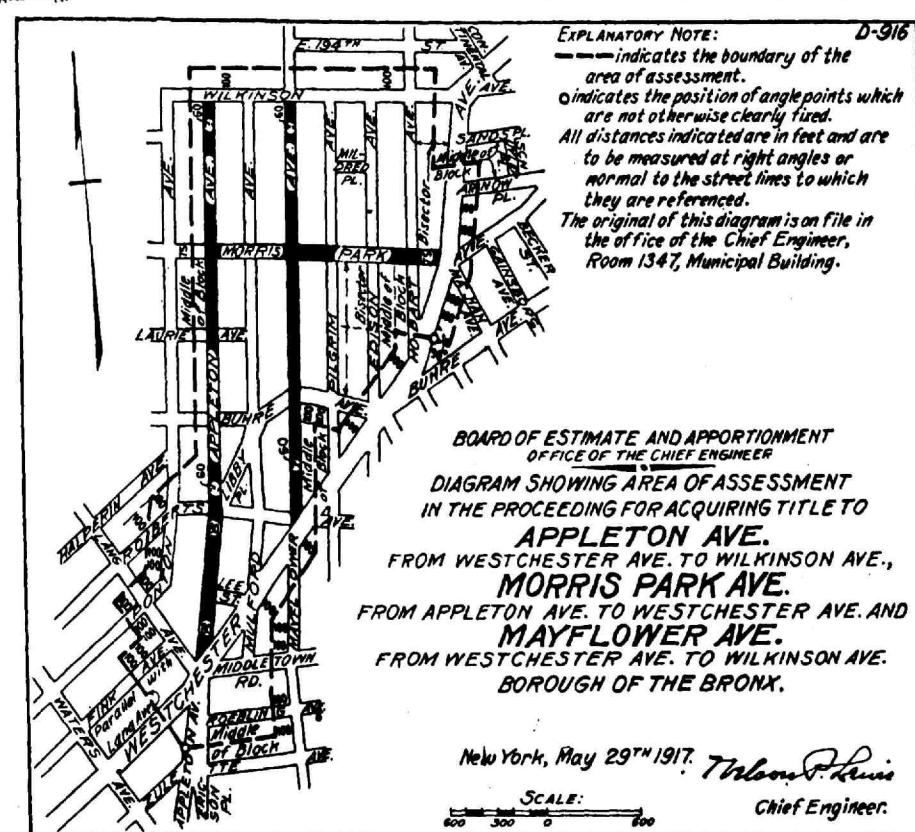 D-916
EXPLANATORY NOTE:
indicates the boundary of the
area of assessment.
indicates the position of angle points which
are not otherwise clearly fixed.
All distances indicated are in feet and are
to be measured at right angles or
normal to the street lines to which
they are referenced.
The original of this diagram is on file in
the office of the Chief Engineer,
Room 1347, Municipal Building.
E. 194TH ST.
CONTINENTAL AV.
WILKINSON AVE.
100
100
60
60
SANDS PL.
Middle of
Block
ARNOW
PL.
MILDRED
PL.
AVE.
AVE.
AVE.
AVE.
AVE.
AVE.
AVE.
Bisector
MORRIS PARK
BECKER
ST.
GAINSBORG
AVE.
HAN
AVE.
Middle
of Block
LAURIE AVE.
APPLETON
PILGRIM
Bisector
EDISON
Middle of
Block
HOBART
BUHRE AVE.
BUHRE AVE.
LIBBY
PL.
Middle
of Block
HALPERIN AVE.
ROBERTS AVE.
LANG AVE.
LEE
ST.
MULFORD
MAYFLOWER
WESTCHESTER
MIDDLETOWN
RD.
FINK AVE.
Parallel
with
Lang Ave.
WATERS
AVE.
ROEBLING AVE.
Middle
of Block
ZULETTE AVE.
APPLETON AV.
ERICSON
PL.
BOARD OF ESTIMATE AND APPORTIONMENT
OFFICE OF THE CHIEF ENGINEER
DIAGRAM SHOWING AREA OF ASSESSMENT
IN THE PROCEEDING FOR ACQUIRING TITLE TO
APPLETON AVE.
FROM WESTCHESTER AVE. TO WILKINSON AVE.,
MORRIS PARK AVE.
FROM APPLETON AVE. TO WESTCHESTER AVE. AND
MAYFLOWER AVE.
FROM WESTCHESTER AVE. TO WILKINSON AVE.
BOROUGH OF THE BRONX.
New York, May 29TH 1917.
Nelson P. Lewis
Chief Engineer.
SCALE:
600 300 0 600